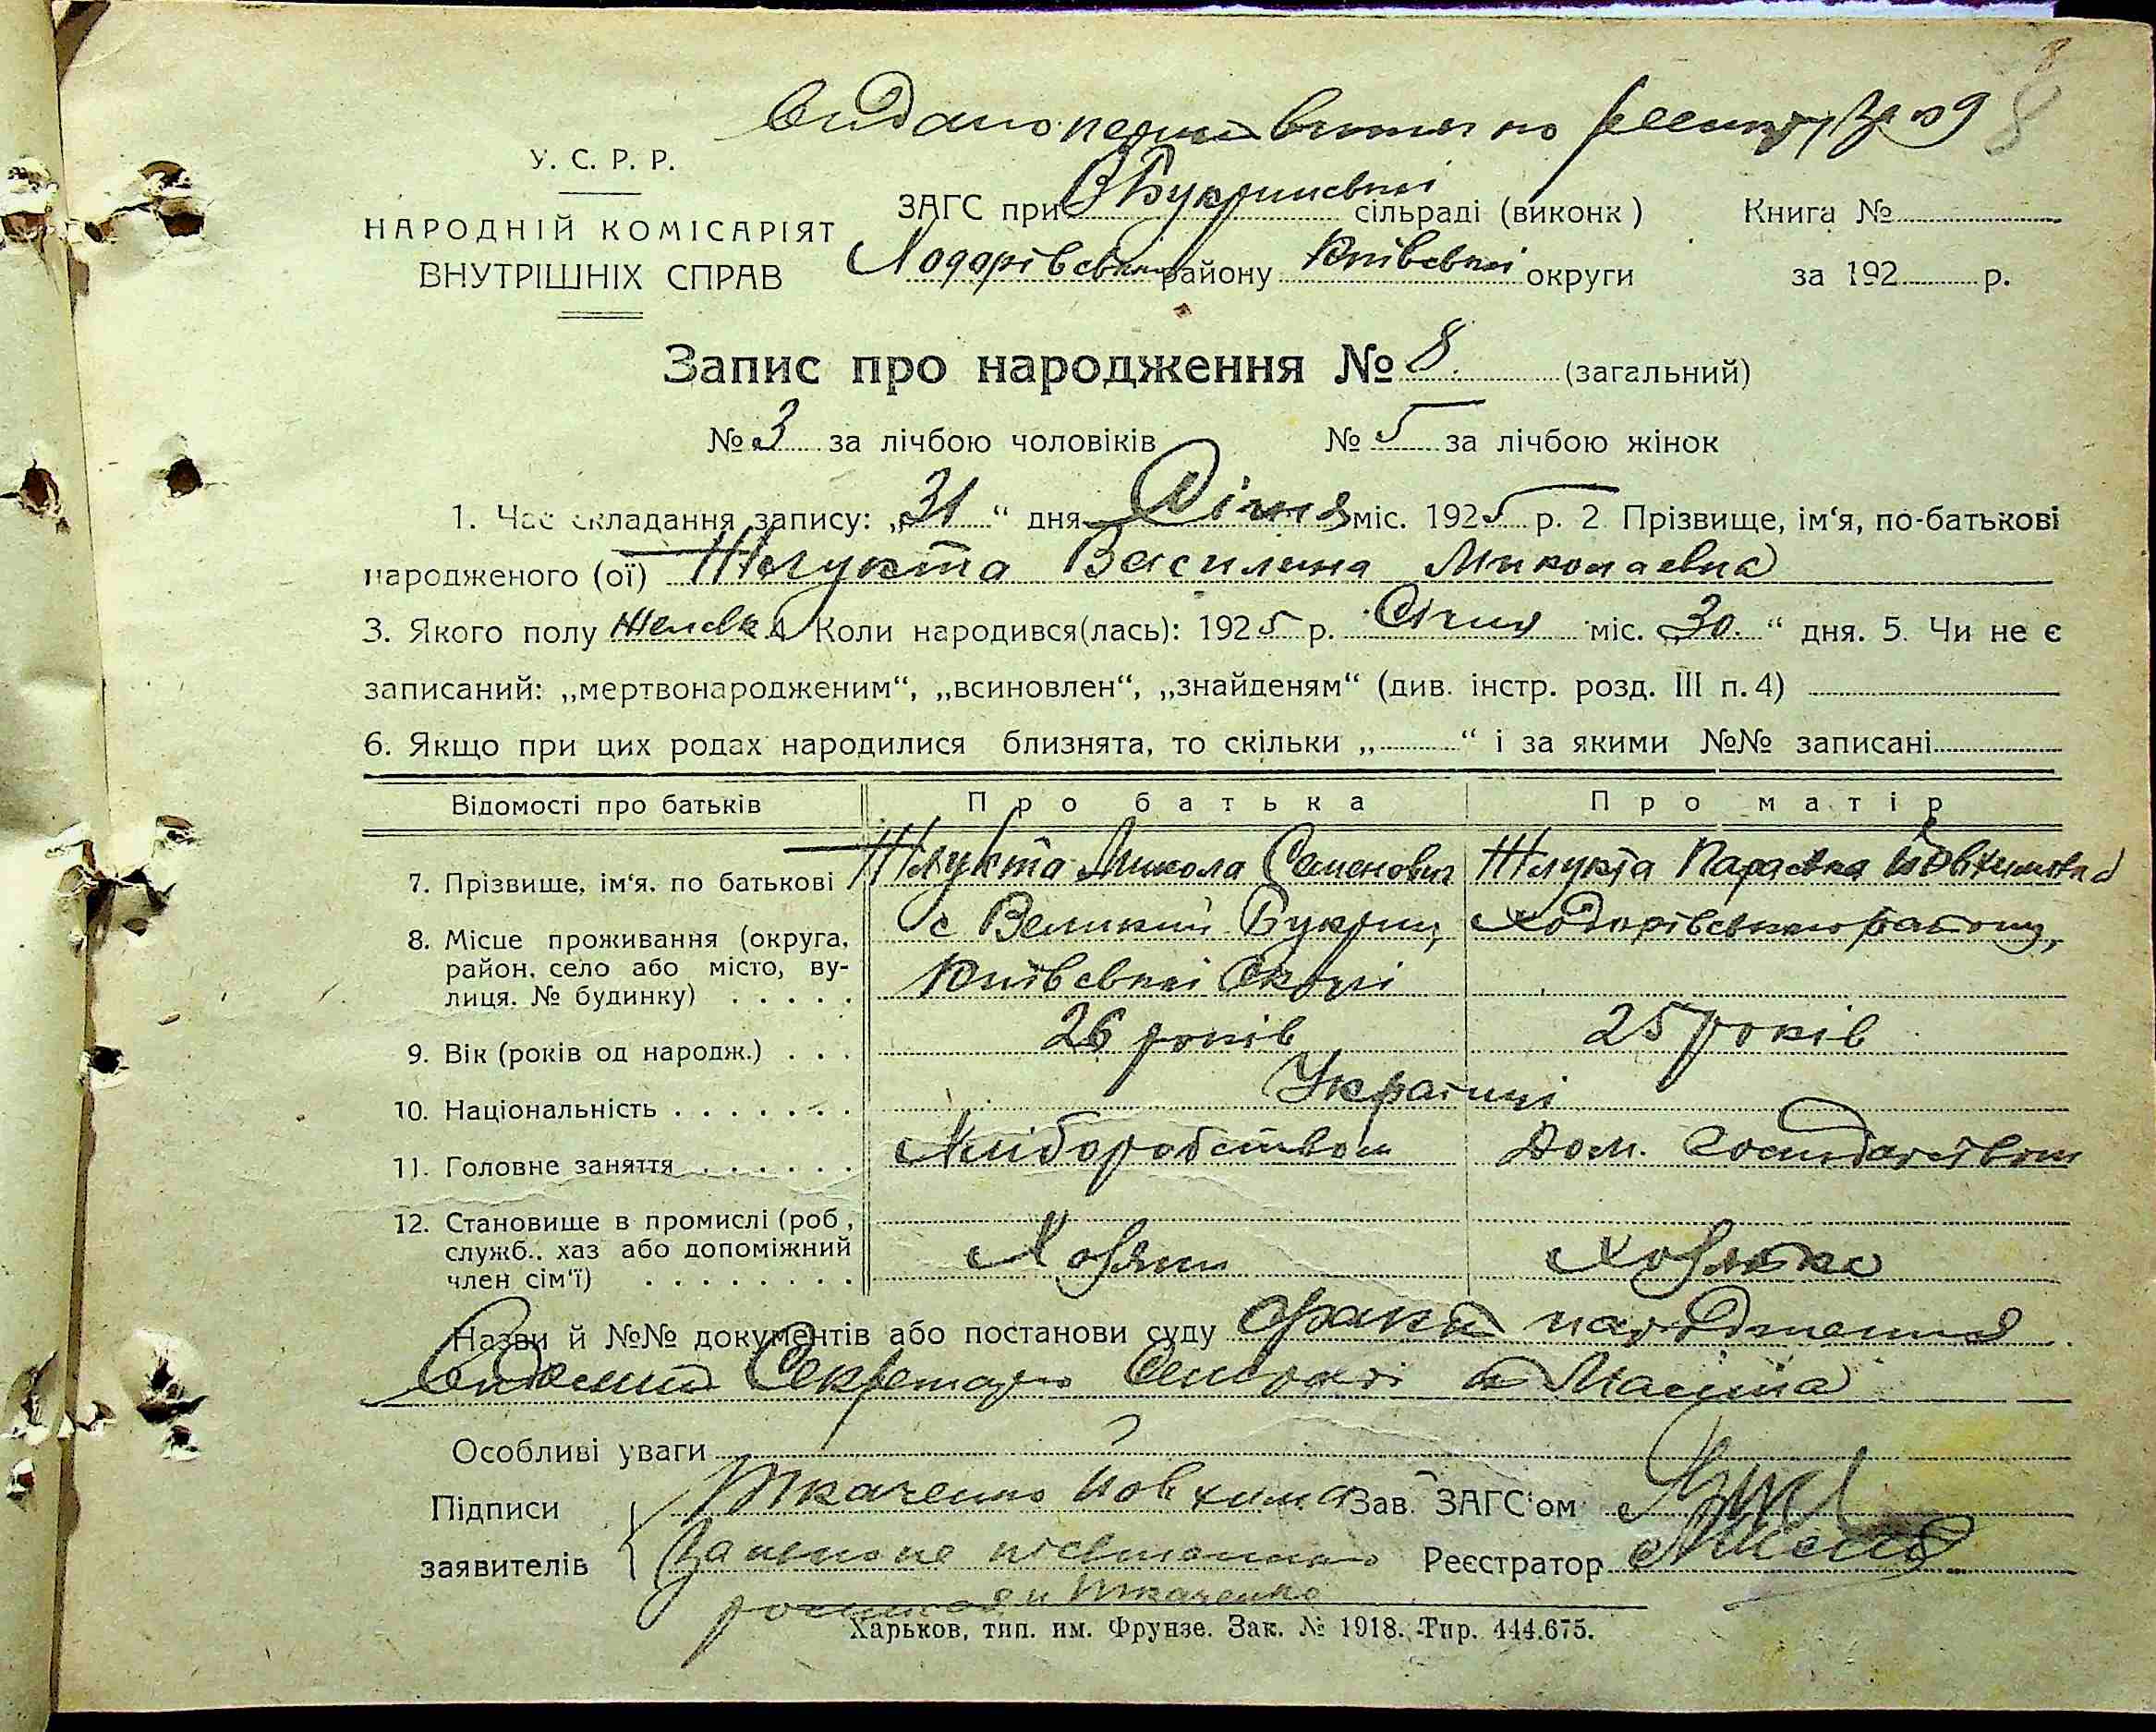 8
Видано по за № 9
У. С. Р. Р.
НАРОДНІЙ КОМІСАРІЯТ
ВНУТРІШНІХ СПРАВ
ЗАГС при В Букринській сільраді (виконк)
Ходорівського району Київської округи
Книга №
за 192 р.
Запис про народження № 8. (загальний)
№ 3 за лічбою чоловіків № 5 за лічбою жінок
1. Час складання запису: „31“ дня Січня міс. 1925 р. 2 Прізвище, ім‘я, по-батькові
народженого (ої) Жлукта Василина Миколаевна
3. Якого полу женск 4 Коли народився(лась): 1925 р. Січня міс. „30.“ дня. 5. Чи не є
записаний: „мертвонародженим“, „всиновлен“, „знайденям“ (див. інстр. розд. III п. 4)
6. Якщо при цих родах народилися близнята, то скільки „ “ і за якими №№ записані
Відомості про батьків Про батька Про матір
7. Прізвище, ім‘я, по батькові Жлукта Микола Семенович Жлукта Параска Йовхимовна
8. Місце проживання (округа, с Великий Букрин, Ходорівського району,
район, село або місто, ву- Київської Округи
лиця. № будинку)
9. Вік (років од народж.) 26 років 25 років
10. Національність Українці
11. Головне заняття Хліборобством Дом. Господарством
12. Становище в промислі (роб,
служб., хаз або допоміжний Хозяин Хозяйка
член сім‘ї)
Назви й №№ документів або постанови суду народження
Секретарь
Особливі уваги
Підписи Ткаченко Йовхима Зав. ЗАГС‘ом
заявителів За неписьменного Реєстратор
Ткаченко
Харьков, тип. им. Фрунзе. Зак. № 1918. Тир. 444.675.